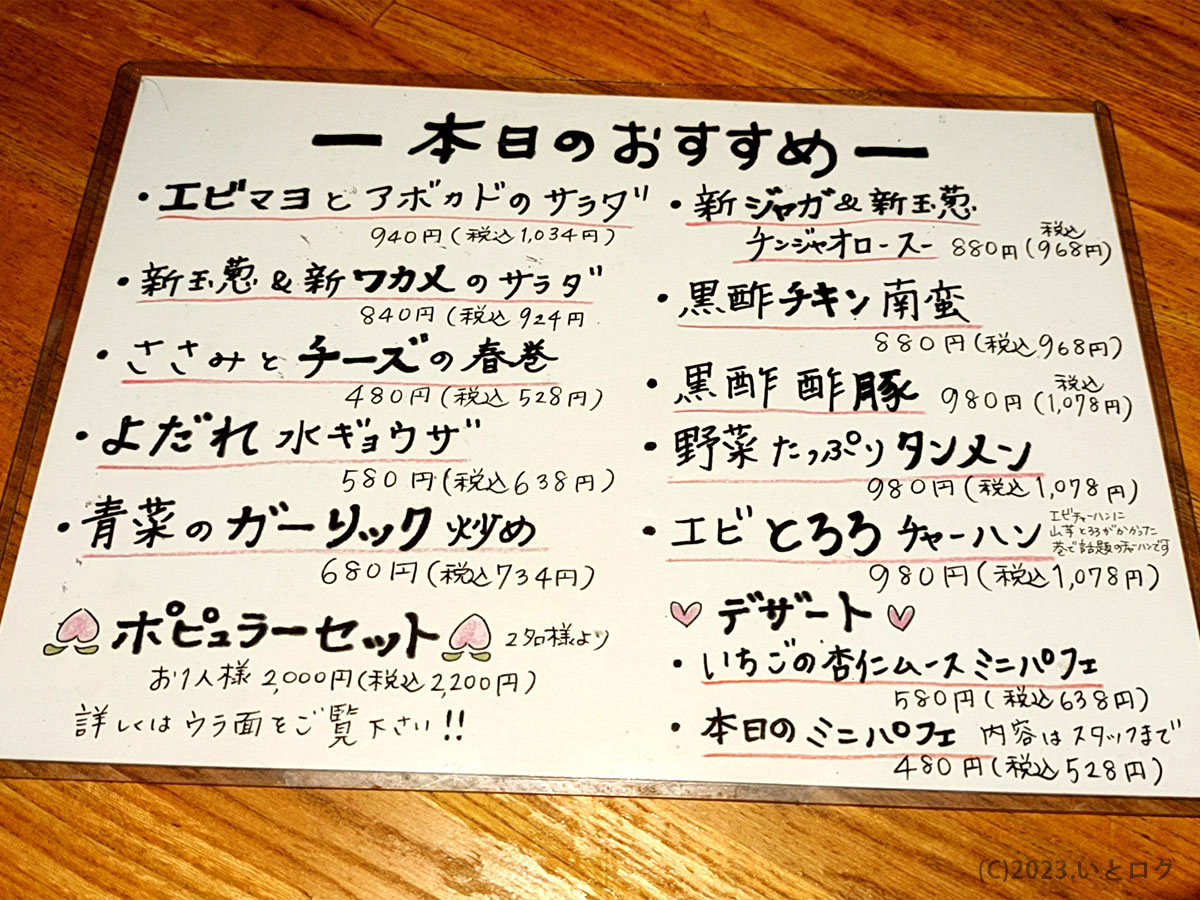 ー本日のおすすめー
・エビマヨとアボカドのサラダ
940円(税込1,034円)
・新玉葱&新ワカメのサラダ
840円(税込924円
・ささみとチーズの春巻
480円(税込528円)
・よだれ水ギョウザ
580円(税込638円)
・青菜のガーリック炒め
680円(税込734円)
ポピュラーセット 2名様より
お1人様2,000円(税込2,200円)
詳しくはウラ面をご覧下さい!!
・新ジャガ&新玉葱
チンジャオロースー 880円(税込968円)
・黒酢チキン南蛮
880円(税込968円)
・黒酢酢豚 980円(税込1,078円)
・野菜たっぷりタンメン
980円(税込1,078円)
・エビとろろチャーハン
エビチャーハンに
山芋とろろがかかった
巷で話題のチャーハンです
980円(税込1,078円)
デザート
・いちごの杏仁ムースミニパフェ
580円(税込638円)
・本日のミニパフェ 内容はスタッフまで
480円(税込528円)
(C)2023,いとログ